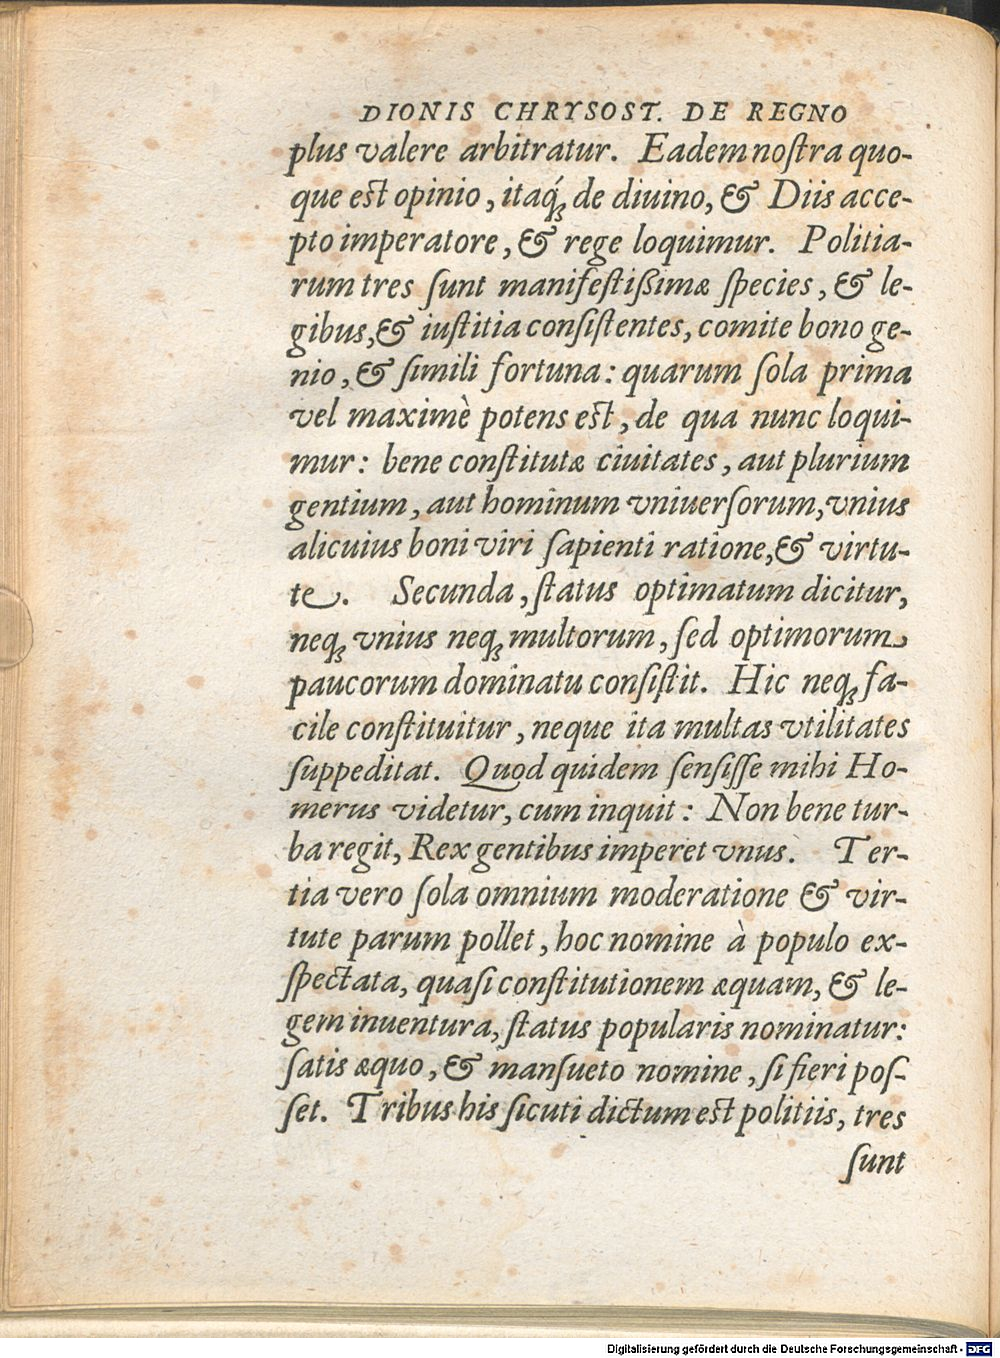 DIONIS CHRYSOST. DE REGNO
plus valere arbitratur. Eadem noſtra quo-
que est opinio, itaq́ꝫ de diuino, & Diis acce-
pto imperatore, & rege loquimur. Politia-
rum tres ſunt manifeſtißimæ ſpecies, & le-
gibus, & iuſtitia conſiſtentes, comite bono ge-
nio, & ſimili fortuna: quarum ſola prima
vel maximè potens est, de qua nunc loqui-
mur: bene conſtitutæ ciuitates, aut plurium
gentium, aut hominum vniuerſorum, vnius
alicuius boni viri ſapienti ratione, & virtu-
te. Secunda, ſtatus optimatum dicitur,
neqꝫ vnius neqꝫ multorum, ſed optimorum
paucorum dominatu conſiſtit. Hic neqꝫ fa-
cile conſtituitur, neque ita multas vtilitates
ſuppeditat. Quod quidem ſenſiſſe mihi Ho-
merus videtur, cum inquit: Non bene tur-
ba regit, Rex gentibus imperet vnus. Ter-
tia vero ſola omnium moderatione & vir-
tute parum pollet, hoc nomine à populo ex-
ſpectata, quaſi conſtitutionem æquam, & le-
gem inuentura, ſtatus popularis nominatur:
ſatis æquo, & manſueto nomine, ſi fieri poſ-
ſet. Tribus his ſicuti dictum est politiis, tres
ſunt
Digitalisierung gefördert durch die Deutsche Forschungsgemeinschaft - DFG